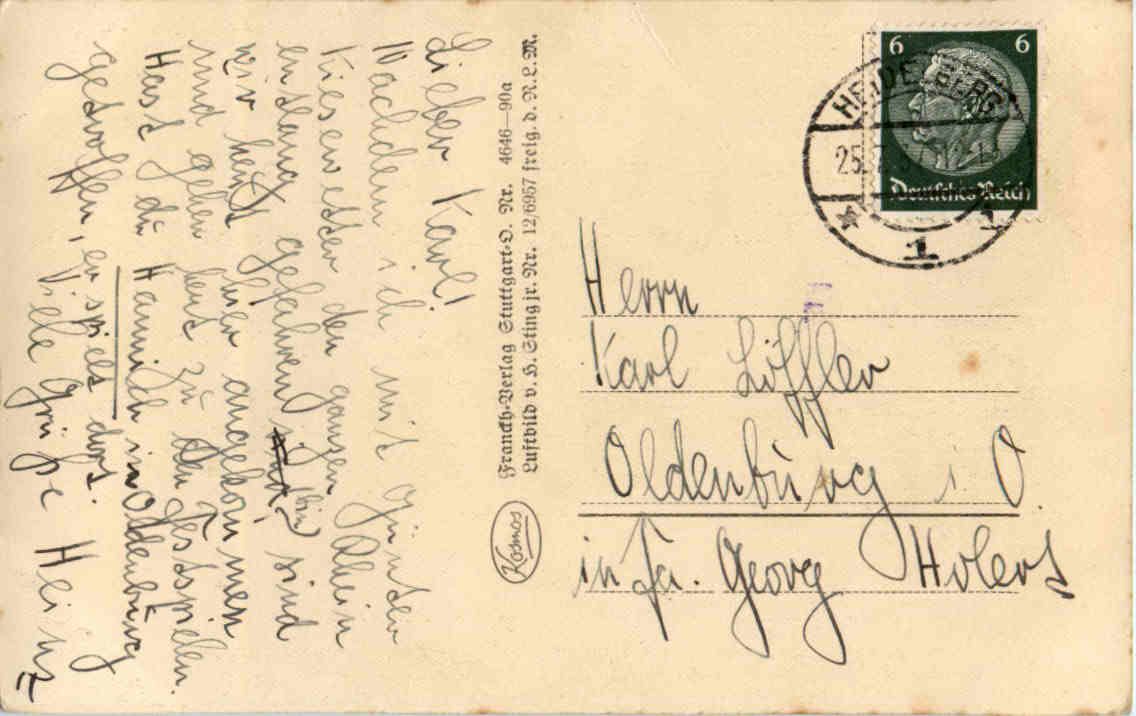 Lieber Karl!
Nachdem ich mit Günter
Kiesewetter den ganzen Rhein
entlang gefahren bin, sind
wir heute hier angekommen
und gehen heut zu den Festspielen.
Hast du Hannich in Oldenburg
getroffen, er spielt dort.
Viele Grüße Heinz
Franckh-Verlag Stuttgart-O. Nr. 4646—90a
Luftbild v. H. Sting jr. Nr. 12/6957 freig. d. R.L.M.
Kosmos
6 6
Deutsches Reich
HEIDELBERG
25.7. 12-13
* 1 1
Herrn
Karl Löffler
Oldenburg i O.
in Fa. Georg